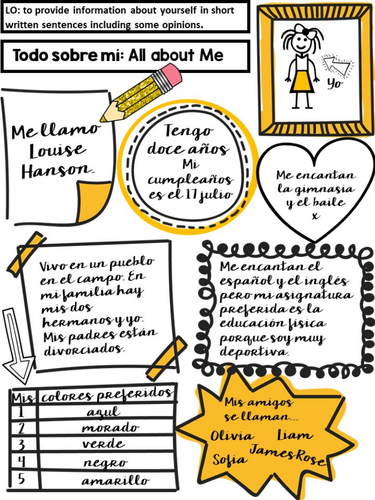 LO: to provide information about yourself in short
written sentences including some opinions.
Todo sobre mi: All about Me
Yo
Me llamo
Louise
Hanson.
Tengo
doce años
Mi
cumpleaños
es el 17 julio
Me encantan
la gimnasia
y el baile
x
Vivo en un pueblo
en el campo. En
mi familia hay
mis dos
hermanos y yo.
Mis padres están
divorciados.
Me encantan el
español y el inglés
pero mi asignatura
preferida es la
educación física
porque soy muy
deportiva.
Mis colores preferidos
1 azul
2 morado
3 verde
4 negro
5 amarillo
Mis amigos
se llaman....
Olivia Liam
Sofia James Rose